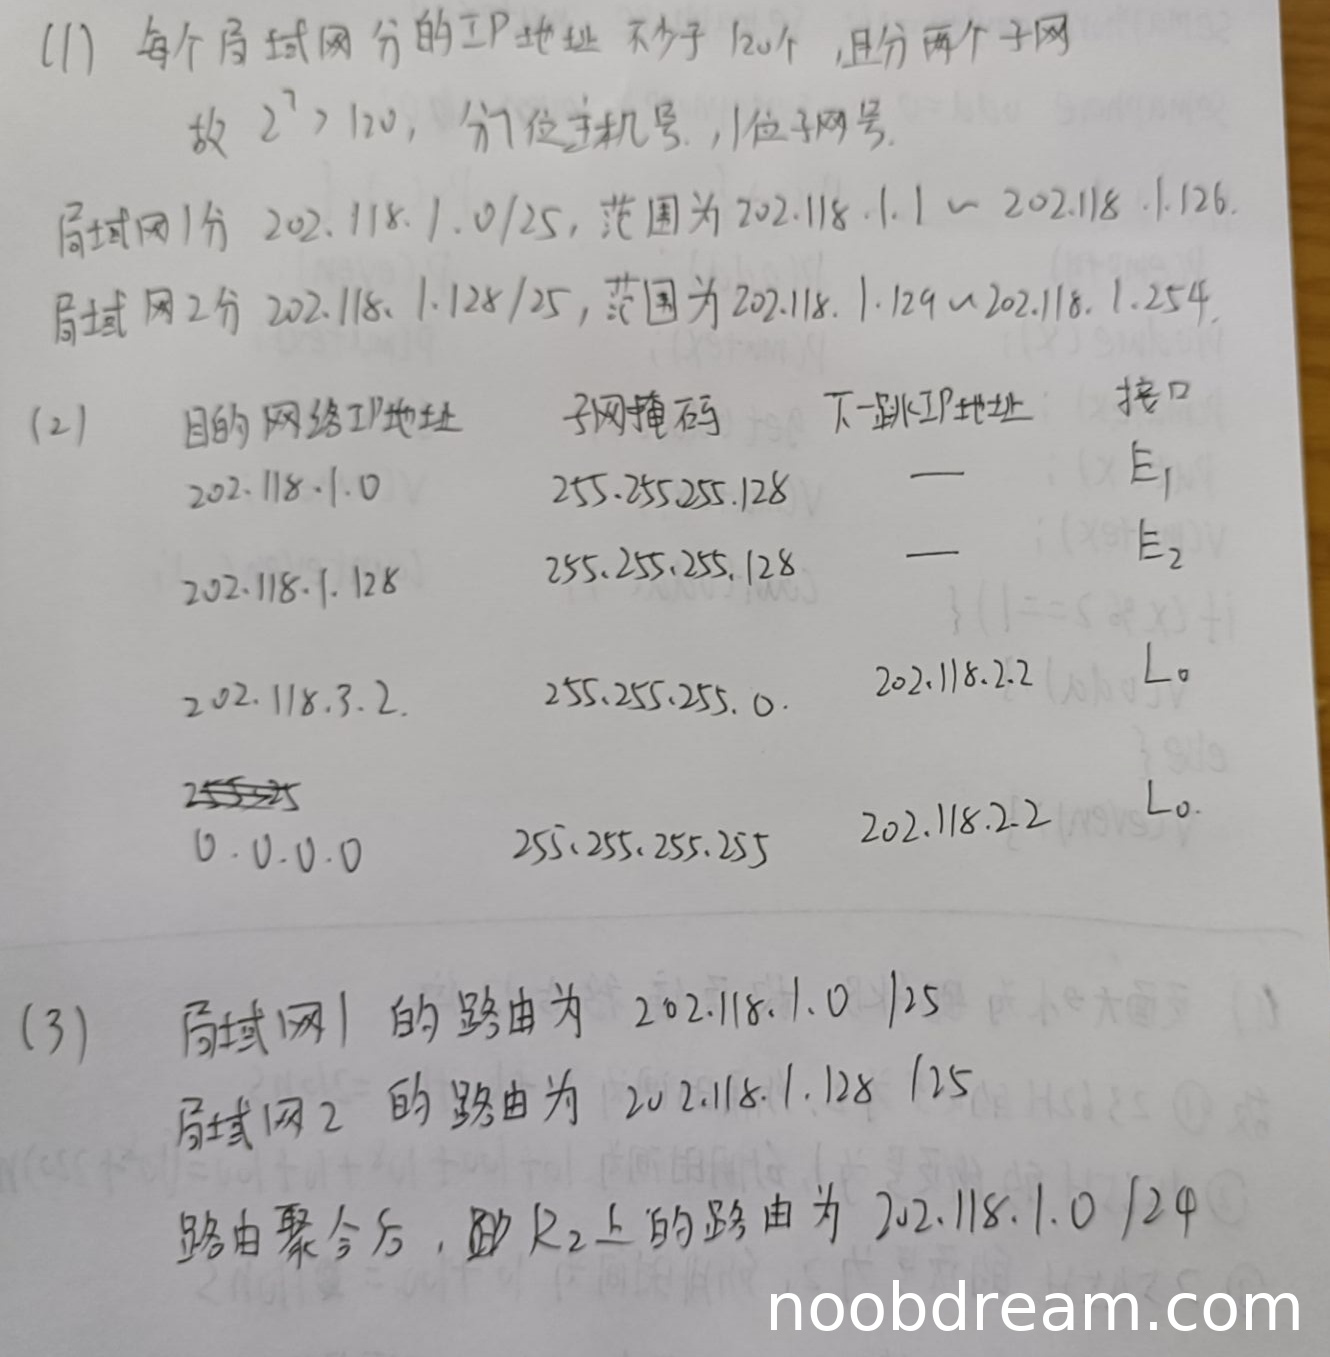 (1) 每个局域网分的IP地址不少于120个,且分两个子网
故 2^7 > 120, 分7位主机号,1位子网号.
局域网1分 202.118.1.0/25, 范围为202.118.1.1 ~ 202.118.1.126.
局域网2分 202.118.1.128/25, 范围为202.118.1.129~202.118.1.254.
(2) 目的网络IP地址 子网掩码 下一跳IP地址 接口
202.118.1.0 255.255.255.128 — E1
202.118.1.128 255.255.255.128 — E2
202.118.3.2. 255.255.255.0. 202.118.2.2 L0
0.0.0.0 255.255.255.255 202.118.2.2 L0.
(3) 局域网1 的路由为 202.118.1.0 /25
局域网2 的路由为 202.118.1.128 /25
路由聚合后, 即R2上的路由为 202.118.1.0 /24
noobdream.com